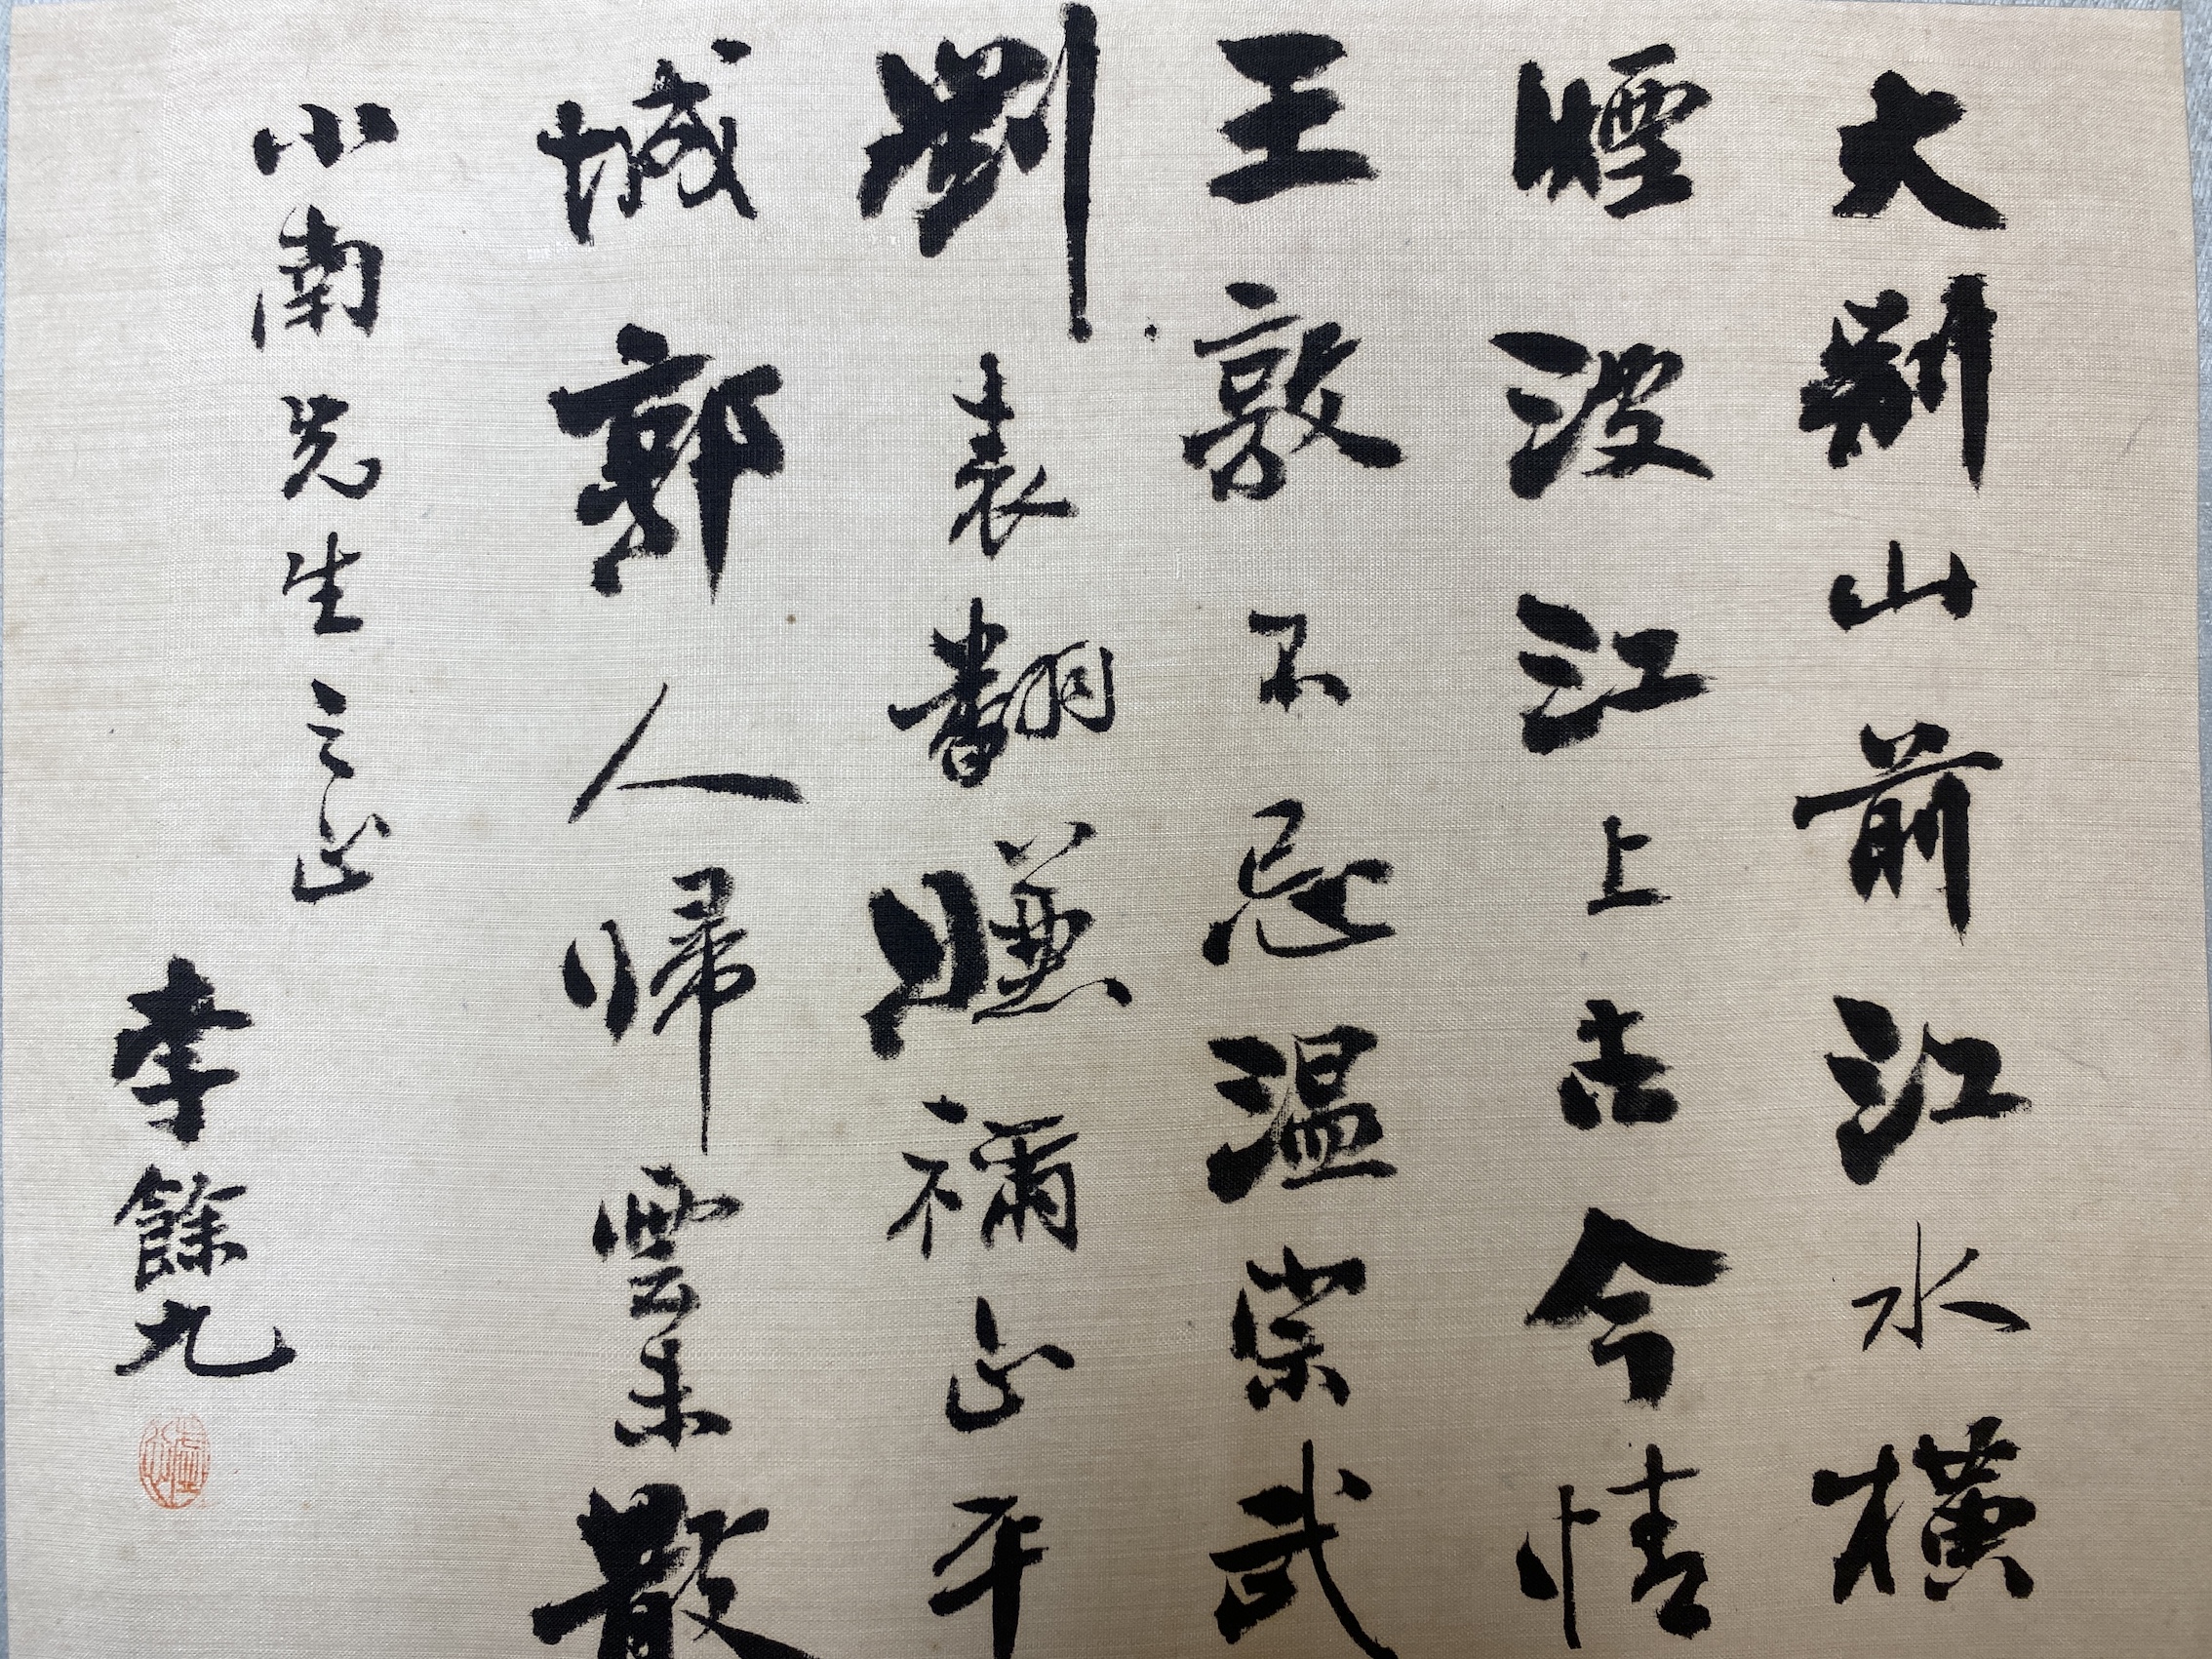 大別山前江水橫
煙波江上古今情
王敦不忌温崇武
劉表翻嫌禰正平
城郭人歸雲未散
小南先生之正
李餘九